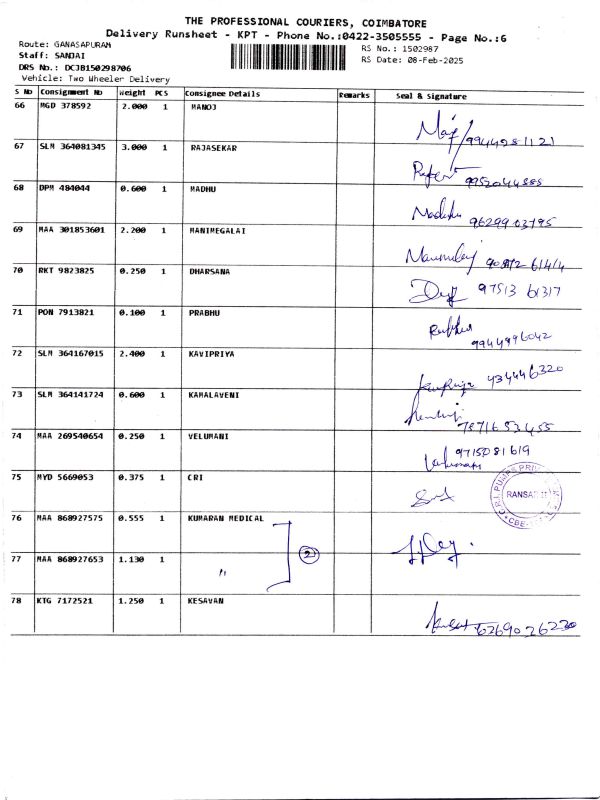 THE PROFESSIONAL COURIERS, COIMBATORE
Delivery Runsheet - KPT - Phone No.:0422-3505555 - Page No.:6
Route: GANASAPURAM
RS No.: 1502987
Staff: SANJAI
RS Date: 08-Feb-2025
DRS No.: DCJB150298706
Vehicle: Two Wheeler Delivery
S No Consignment No Weight PCS Consignee Details Remarks Seal & Signature
66 MGD 378592 2.000 1 MANOJ
9944981121
67 SLM 364081345 3.000 1 RAJASEKAR
9952044585
68 DPM 484044 0.600 1 MADHU
Madhu 9629903795
69 MAA 301853601 2.200 1 MANIMEGALAI
70 RKT 9823825 0.250 1 DHARSANA
97513 61317
71 PON 7913821 0.100 1 PRABHU
9944996042
72 SLM 364167015 2.400 1 KAVIPRIYA
434446320
73 SLM 364141724 0.600 1 KAMALAVENI
7871653455
74 MAA 269540654 0.250 1 VELUMANI
9715081619
75 MYD 5669053 0.375 1 CRI
C.R.I. PUMPS
RANSAR
CBE
76 MAA 868927575 0.555 1 KUMARAN MEDICAL
2
77 MAA 868927653 1.130 1 "
78 KTG 7172521 1.250 1 KESAVAN
6269026230